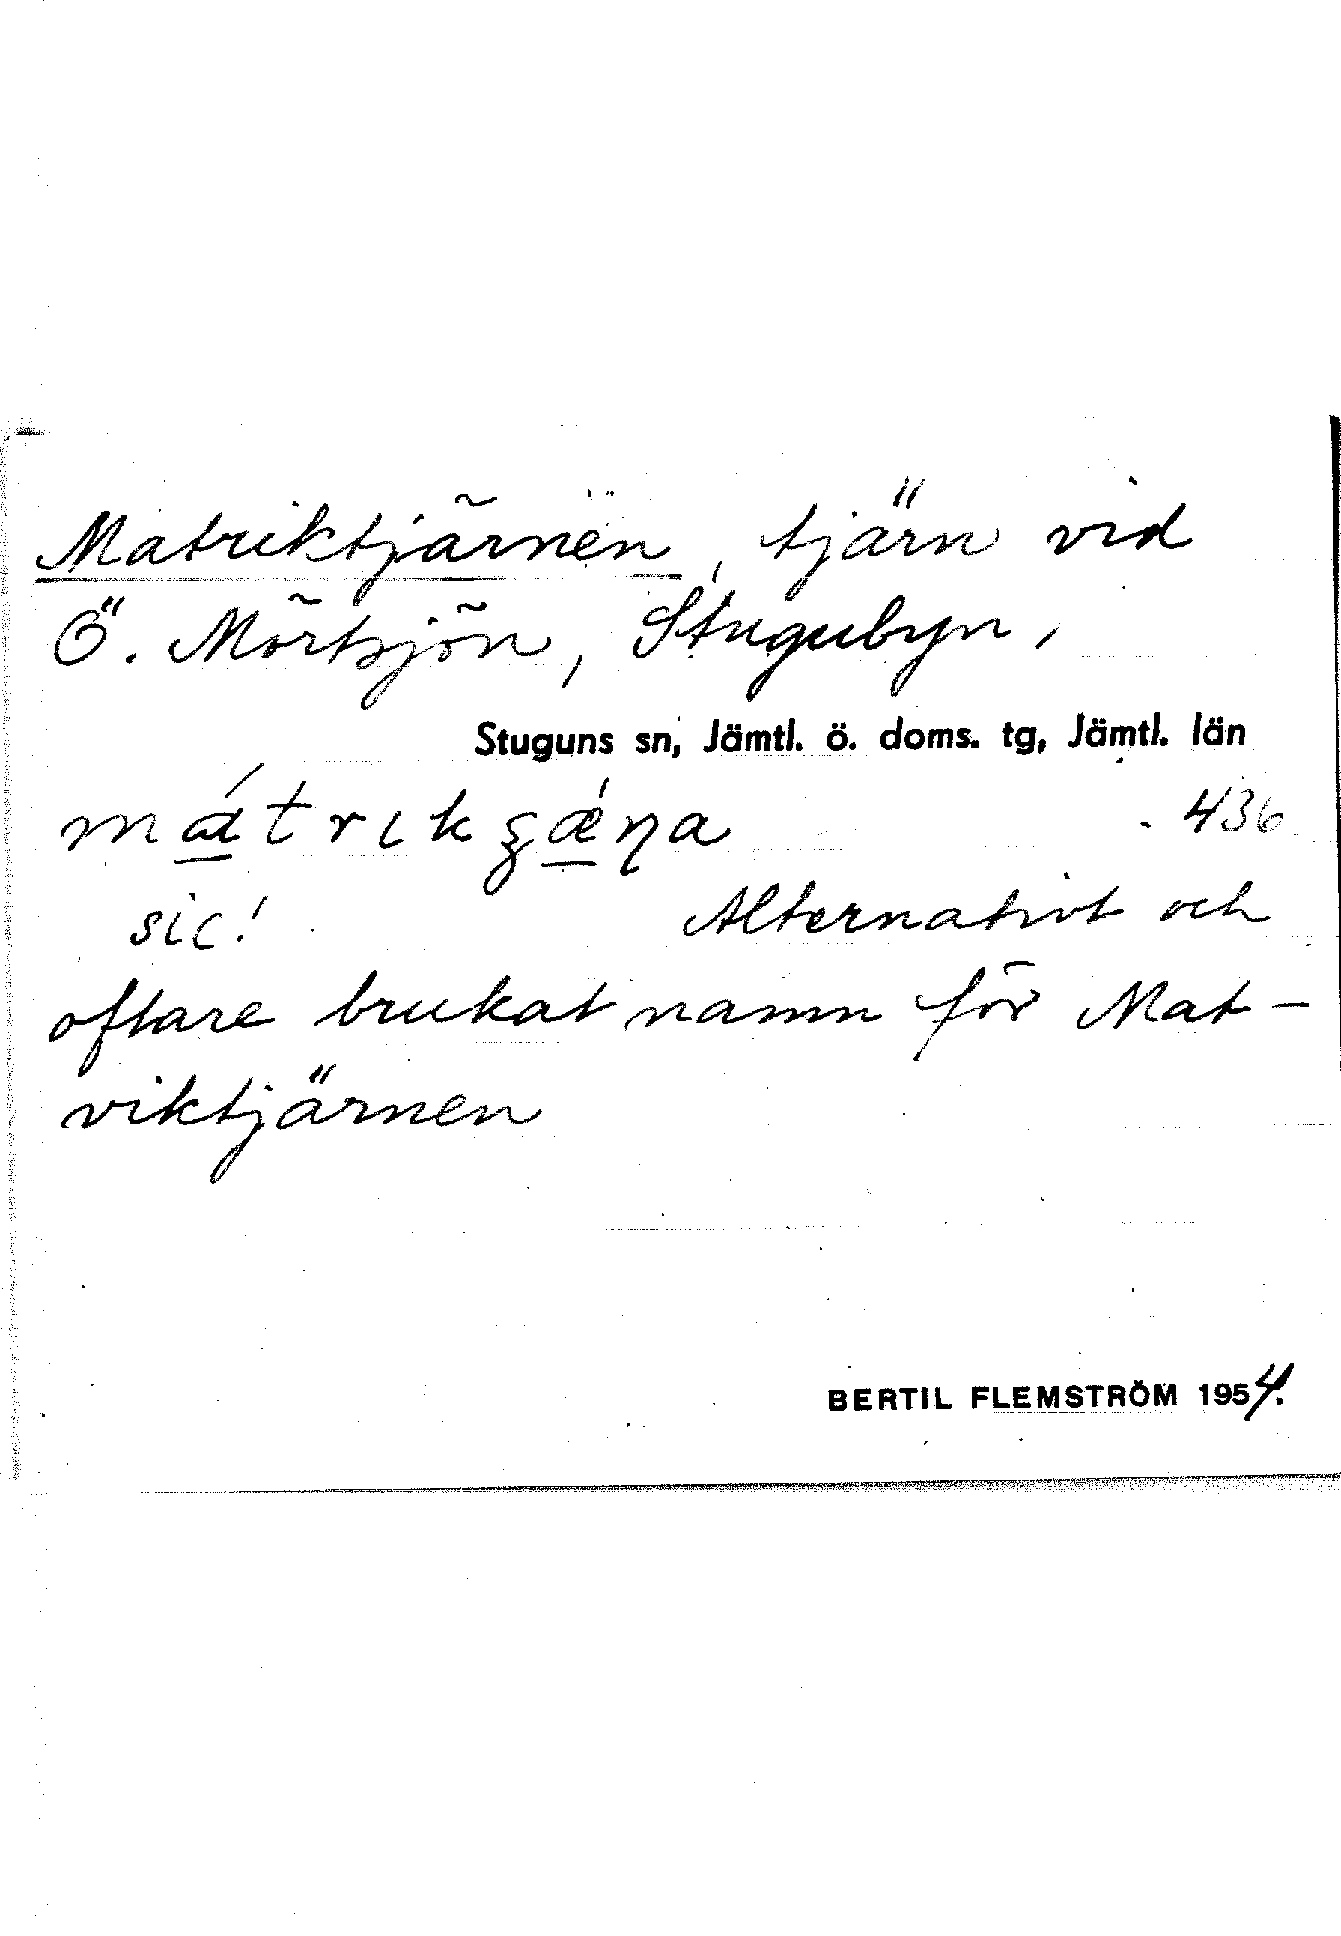 Matriktjärnen, tjärn vid
Ö. Mörtsjön, Stugubyn,
Stuguns sn, Jämtl. ö. doms. tg, Jämtl. län
436
sic! Alternativt och
oftare brukat namn för Mat-
viktjärnen
BERTIL FLEMSTRÖM 1954.